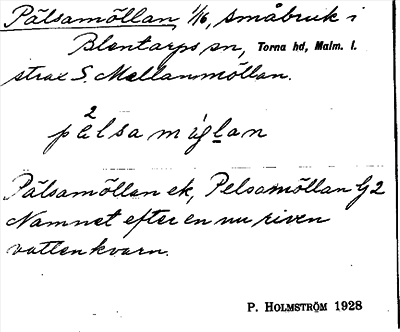 Pälsamöllan, 1/16, småbruk i
Blentarps sn, Torna hd, Malm. l.
strax S. Mellanmöllan.
2
pælsa miglan
Pälsamöllan ek, Pelsamöllan G2
Namnet efter en nu riven
vattenkvarn.
P. HOLMSTRÖM 1928